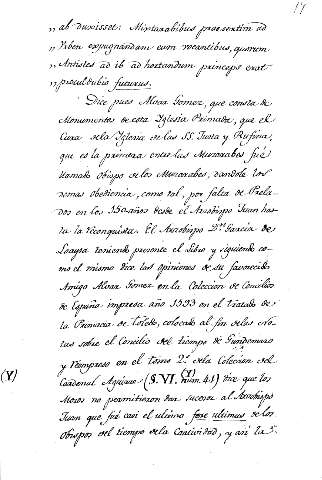 17
„ ab duxisset: Mixtarabibus praesertim ad
„ Urbem expugnandam eum vocantibus, quorum
„ Antistes ad id ad hortandum princeps erat
„ proculdubio futurus.
Dice pues Alvar Gomez, que consta de
Monumentos de esta Iglesia Primada, que el
Cura de la Iglesia de las SS. Justa y Rufina,
que es la primera entre las Muzarabes fué
llamado Obispo de los Muzarabes, dandole los
demas obediencia, como tal, por falta de Prela
dos en los 150 años desde el Arzobispo Juan has
ta la reconquista. El Arzobispo Dn. Garcia de
Loaysa teniendo presente el libro y siguiendo co
mo el mismo dice las opiniones de su favorecido
Amigo Alvar Gomez en la Coleccion de Concilios
de España impresa año 1593 en el tratado de
la Primacia de Toledo, colocado al fin de las no
tas sobre el Concilio del tiempo de Gundemaro
y reimpreso en el tomo 2º de la Coleccion del
(Y) Cardenal Aguirre (S. VI. (Y) num. 41) dice que los
Moros no permitieron dar sucesor al Arzobispo
Juan que fué casi el ultimo fere ultimus de los
Obispos del tiempo de la Cautividad, y asi la S.